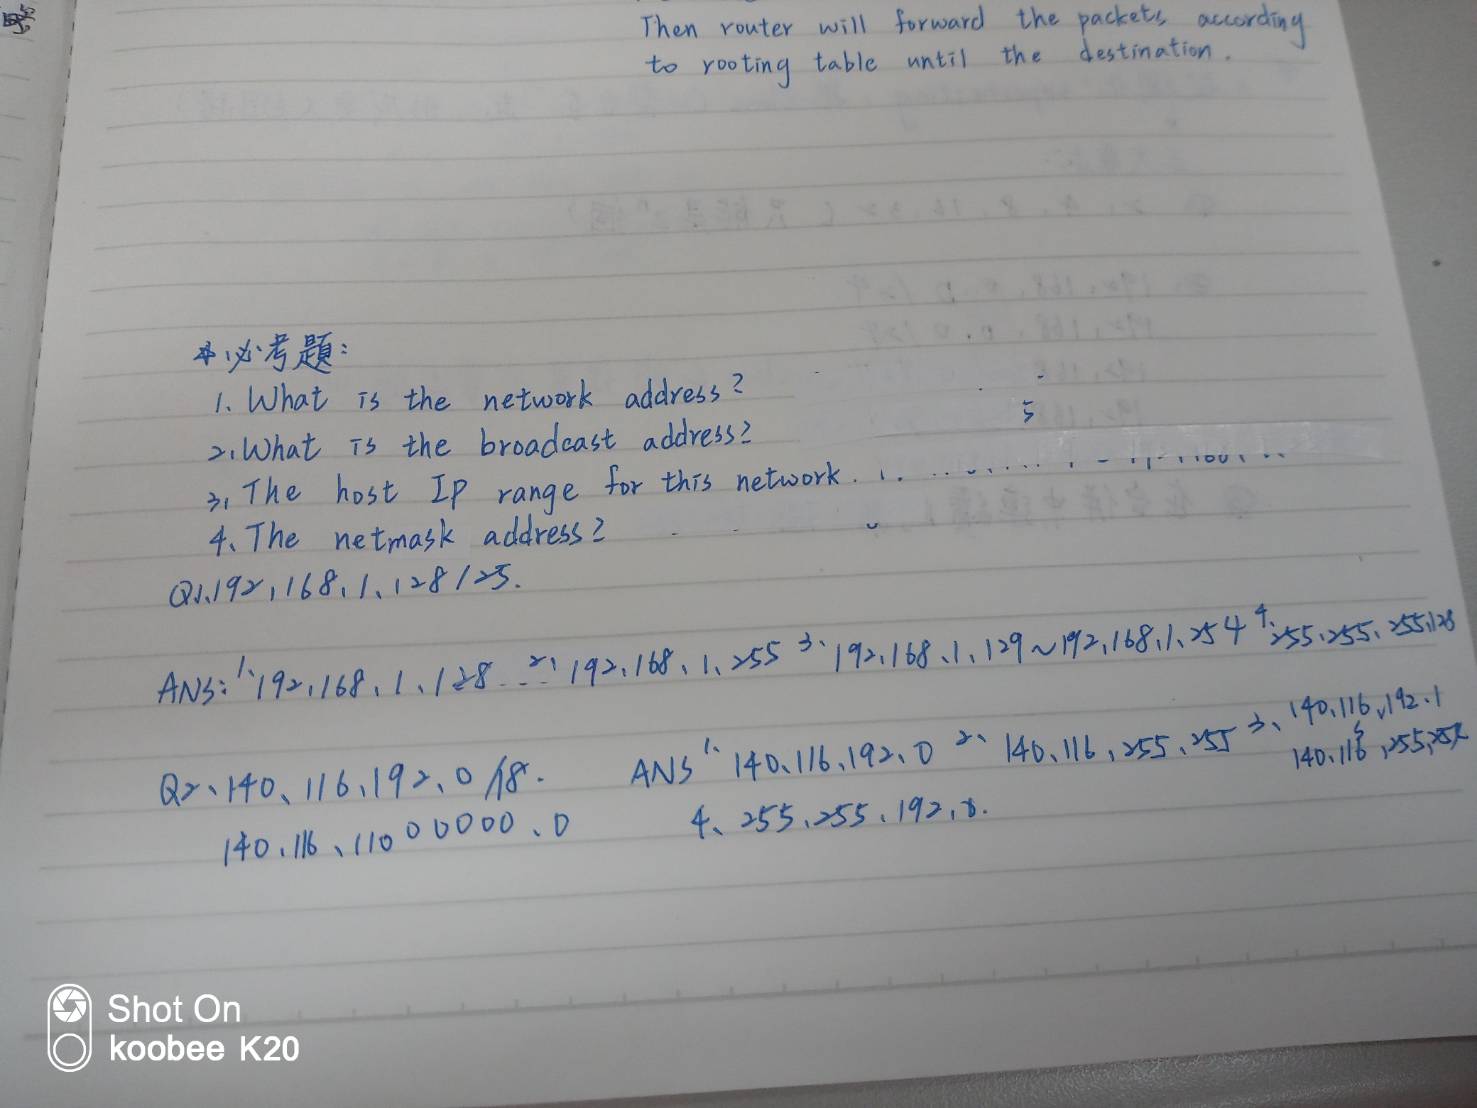 Then router will forward the packets according
to rooting table until the destination.
必考題:
1. What is the network address?
2. What is the broadcast address?
5
3. The host IP range for this network.
4. The netmask address?
Q1. 192.168.1.128/25.
ANS: 1. 192.168.1.128 2. 192.168.1.255 3. 192.168.1.129~192.168.1.254 4. 255.255.255.128
Q2. 140.116.192.0/18. ANS 1. 140.116.192.0 2. 140.116.255.255 3. 140.116.192.1
140.116.255.25
140.116.11000000.0 4. 255.255.192.0.
Shot On
koobee K20